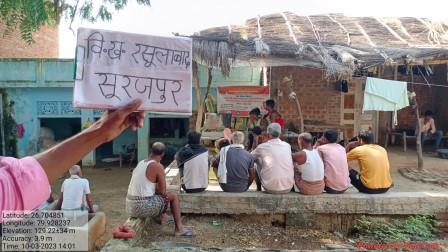 वि.ख. रसूलाबाद
सूरजपुर
Latitude: 26.704851
Longitude: 79.928237
Elevation: 129.22±34 m
Accuracy: 3.9 m
Time: 10-03-2023 14:01